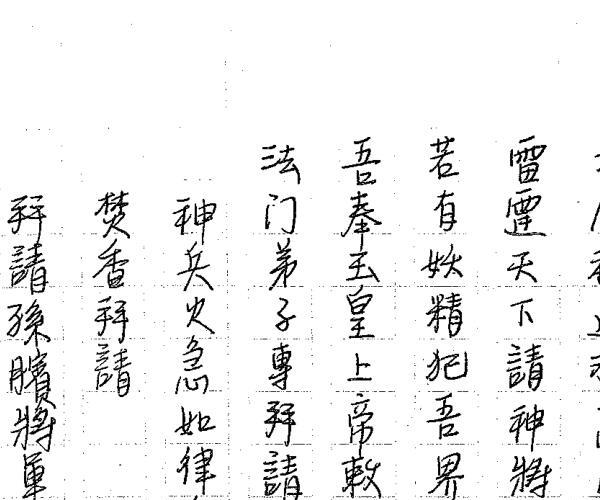 雷霆天下請神將
若有妖精犯吾界
吾奉玉皇上帝敕
法门弟子專拜請
神兵火急如律
焚香拜請
拜請孫臏將軍